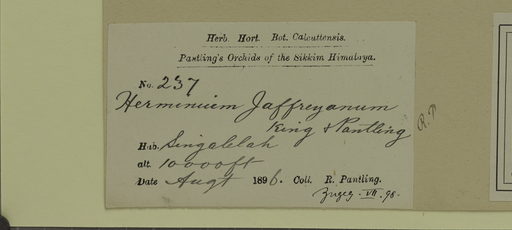 Herb. Hort. Bot. Calcuttensis.
Pantling's Orchids of the Sikkim Himalaya.
No. 237
Herminium Jaffreyanum
King & Pantling
R.P
Hab. Singalelah
alt. 10000ft
Date Augt 1896. Coll. R. Pantling.
VII. 98.